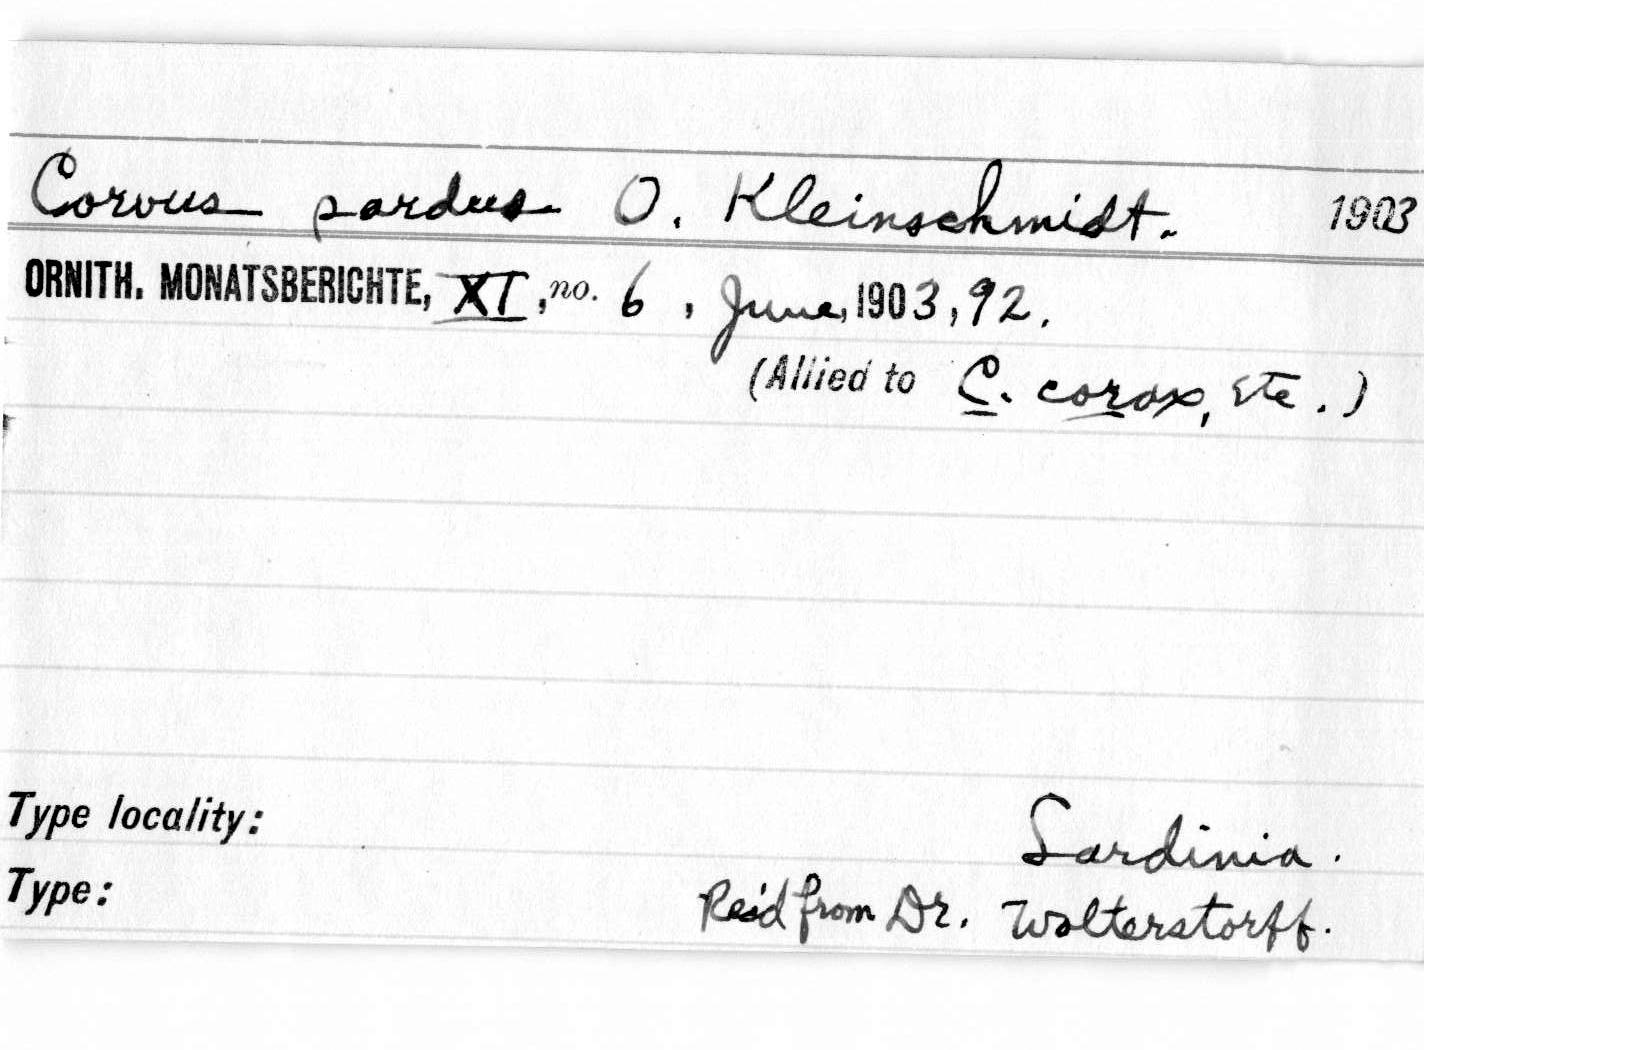 Corvus sardus O. Kleinschmidt. 1903
ORNITH. MONATSBERICHTE, XI, no. 6, June, 1903, 92.
(Allied to C. corax, etc.)
Type locality: Sardinia.
Type: Rec'd from Dr. Wolterstorff.